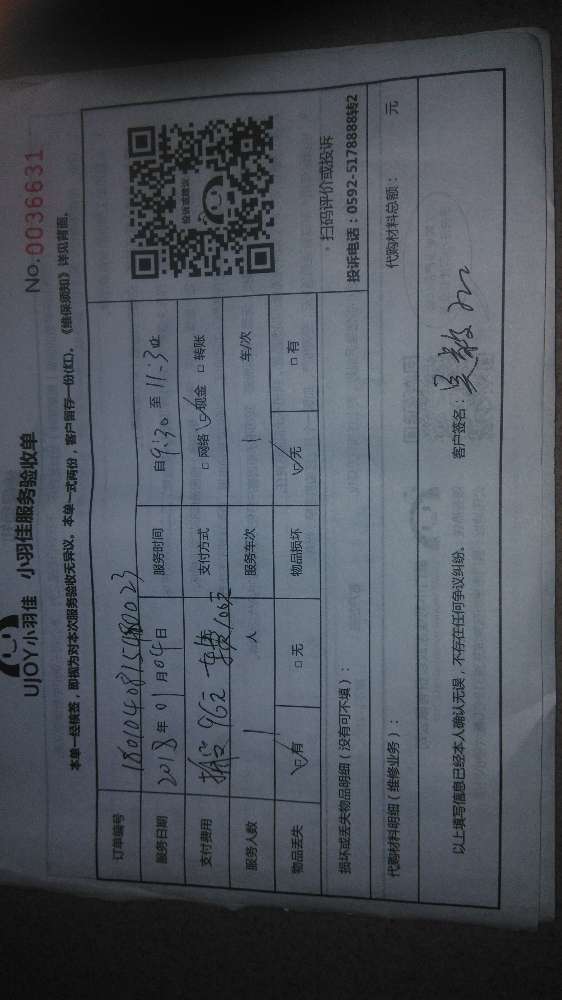 UJOY小羽佳 小羽佳服务验收单
No:0036631
本单一经核签，即视为对本次服务验收无异议。本单一式两份，客户留存一份(红)。《维保须知》详见背面。
订单编号
服务日期 2018 年 01 月 04 日 服务时间 自 9:30 至 11:30 止
支付费用 96元 车费10元 支付方式 □ 网络 ☑ 现金 □ 转账
服务人数 1 人 服务车次 1 车/次
物品丢失 ☑ 有 □ 无 物品损坏 ☑ 无 □ 有
投诉或建议
扫码评价或投诉
投诉电话：0592-5178888转2
损坏或丢失物品明细（没有可不填）：
代购材料明细（维修业务）： 代购材料总额： 元
以上填写信息已经本人确认无误，不存在任何争议纠纷。 客户签名：